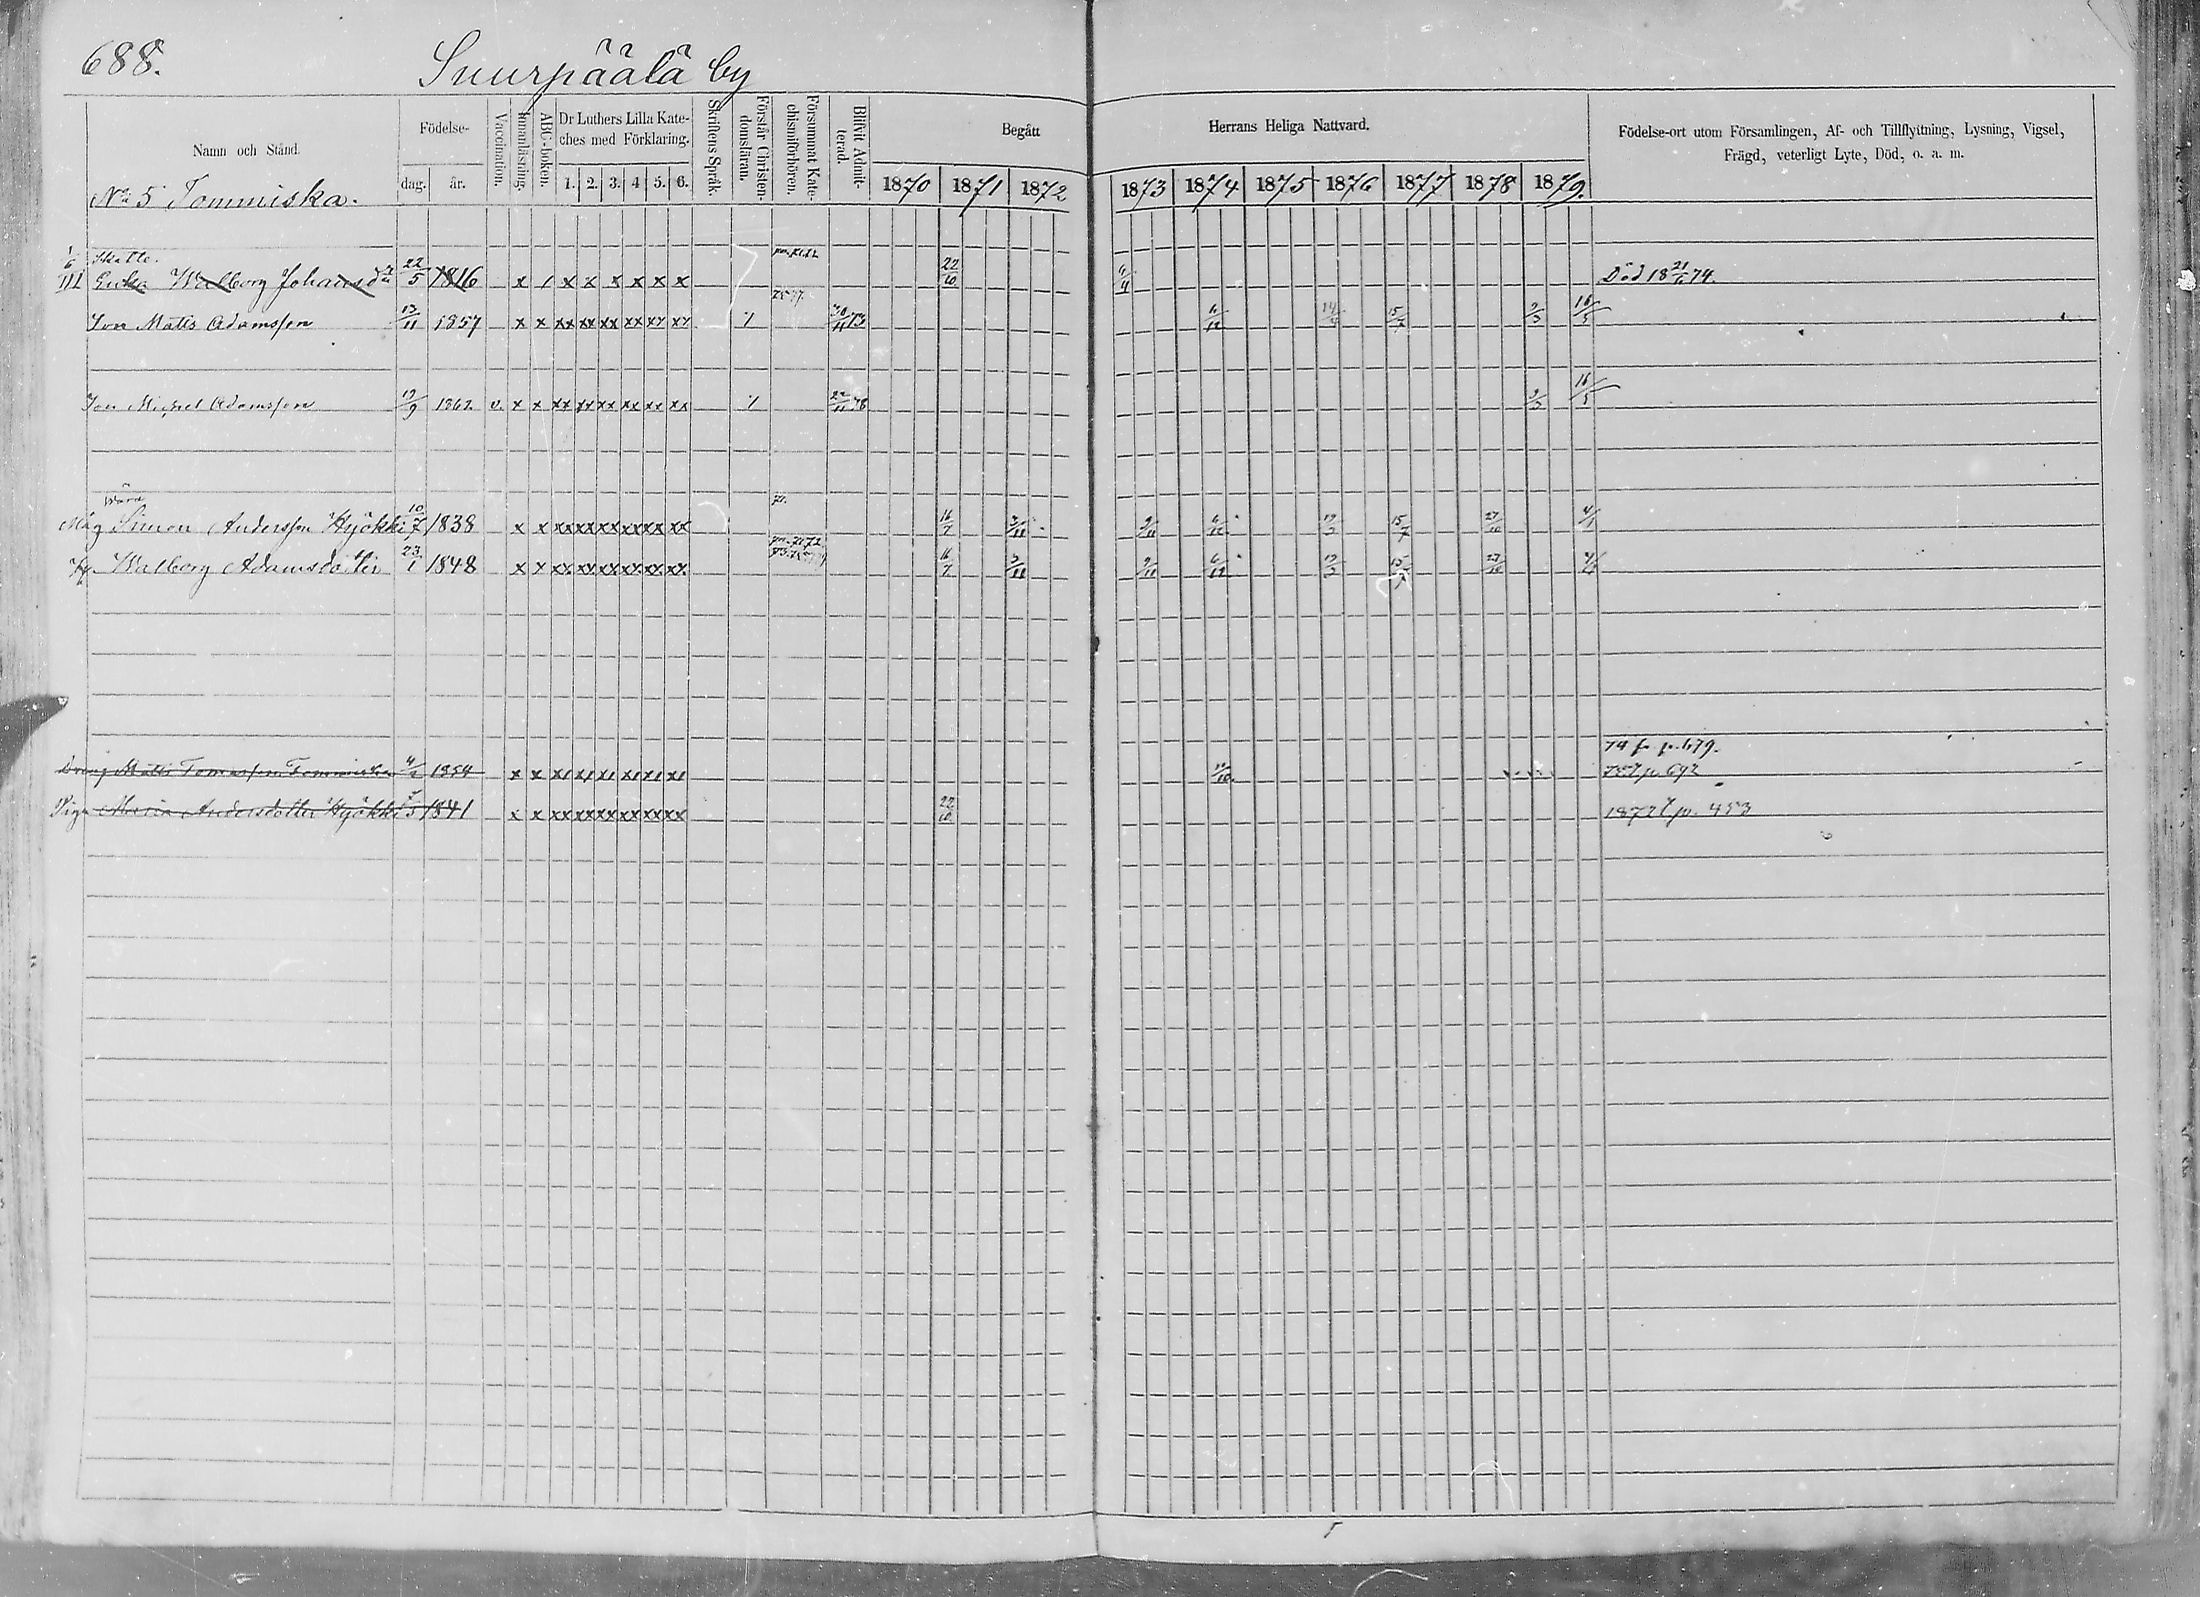 688. Suurpäälä by
Namn och Stånd.
Födelse-
dag. år.
Vaccination.
Innanläsning.
ABC-boken.
Dr Luthers Lilla Kate-
ches med Förklaring.
1. 2. 3. 4 5. 6.
Skriftens Språk.
Förstår Christen-
domsläran.
Försummat Kate-
chismiförhören.
Blifvit Admit-
terad.
Begått Herrans Heliga Nattvard.
1870 1871 1872 1873 1874 1875 1876 1877 1878 1879.
Födelse-ort utom Församlingen, Af- och Tillflyttning, Lysning, Vigsel,
Frägd, veterligt Lyte, Död, o. a. m.
No 5 Tommiska.
Enka Walborg Johansd 22/5 1816 x / x x x x x x 22/10 Död 18 74.
Son Matts Adamsson 13/11 1857 x x xx xx xx xx xx xx 30/11 73 15/7 16/5
Son Michel Adamsson 19/9 1862 v. x x xx xx xx xx xx xx 78 16/5
Måg Simon Andersson Hyökki 10/7 1838 x x xx xx xx xx xx xx 16/7 3/11 9/11 6/12 15/7 27/10 4/1
Walborg Adamsdotter 23/1 1848 x x xx xx xx xx xx xx 16/7 3/11 9/11 6/12 15/7 27/10
74 fr p. 679.
Dreng Matts Tomasson Tommiska 1854 x x p. 692
Piga Maria Andersdotter Hyökki 1841 x x xx xx xx xx xx xx 22/10 1872 p. 453